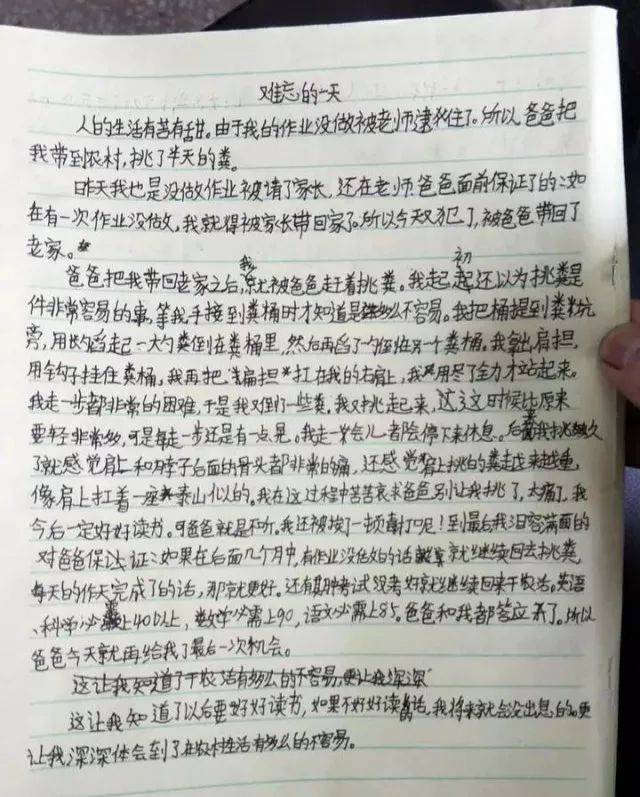 难忘的一天
人的生活有苦有甜。由于我的作业没做被老师逮住了。所以爸爸把
我带到农村,挑了半天的粪。
昨天我也是没做作业被请了家长,还在老师.爸爸面前保证了的:如
在有一次作业没做,我就得被家长带回家了。所以今天又犯了,被爸爸带回了
老家。
爸爸把我带回老家之后,我就被爸爸赶着挑粪。我起初还以为挑粪是
件非常容易的事,等我手接到粪桶时才知道是多么不容易。我把桶提到粪坑
旁,用勺舀起一大勺粪倒在粪桶里,然后再舀了一勺倒在另一个粪桶。我拿出扁担,
用钩子挂住粪桶,我再把扁担扛在我的右肩上,我用尽了全力才站起来。
我走一步都非常的困难,于是我又倒了一些粪。我又挑起来,这时候比原来
要轻非常多,可是每走一步还是有一点晃。我走一会儿都会停下来休息。后面我挑久
了就感觉肩上和脖子后面的骨头都非常的痛,还感觉肩上挑的粪越来越重,
像肩上扛着一座泰山似的。我在这过程中苦苦哀求爸爸别让我挑了,太痛了,我
今后一定好好读书。可爸爸就是不听。我还被挨了一顿毒打呢!到最后我泪容满面的
对爸爸保证:如果在后面几个月中,有作业没做的话就继续回去挑粪,
每天的作天完成了的话,那就更好。还有期中考试没考好就继续回来干农活。英语
、科学必需上40以上,数学必需上90,语文必需上85。爸爸和我都答应了。所以
爸爸今天就再给我了最后一次机会。
这让我知道了干农活有多么的不容易,更让我深深
这让我知道了以后要好好读书,如果不好好读书的话,我将来就会没出息的。更
让我深深体会到了在农村生活有多么的不容易。